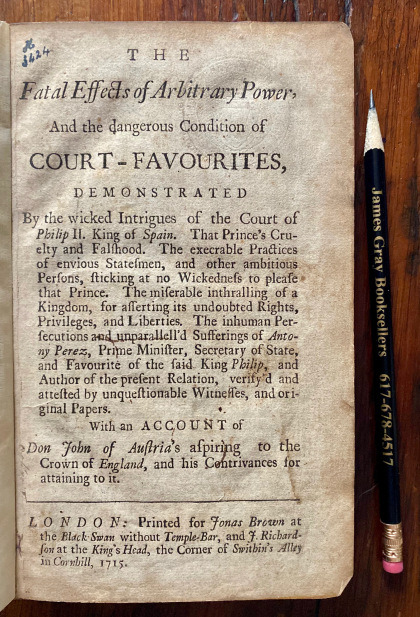 THE
Fatal Effects of Arbitrary Power,
And the dangerous Condition of
COURT-FAVOURITES,
DEMONSTRATED
By the wicked Intrigues of the Court of
Philip II. King of Spain. That Prince's Cru-
elty and Falſhood. The execrable Practices
of envious Stateſmen, and other ambitious
Perſons, ſticking at no Wickedneſs to pleaſe
that Prince. The miſerable inthralling of a
Kingdom, for aſſerting its undoubted Rights,
Privileges, and Liberties. The inhuman Per-
ſecutions and unparallell'd Sufferings of Anto-
ny Perez, Prime Miniſter, Secretary of State,
and Favourite of the ſaid King Philip, and
Author of the preſent Relation, verify'd and
atteſted by unqueſtionable Witneſſes, and ori-
ginal Papers.
With an ACCOUNT of
Don John of Auſtria's aſpiring to the
Crown of England, and his Contrivances for
attaining to it.
LONDON: Printed for Jonas Brown at
the Black Swan without Temple-Bar, and J. Richard-
ſon at the King's Head, the Corner of Swithin's Alley
in Cornhill, 1715.
James Gray Booksellers 617-678-4517